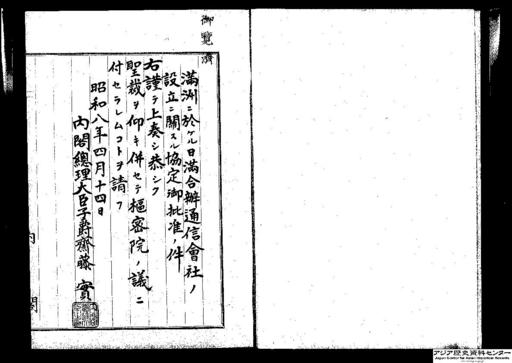 御覽濟
滿洲ニ於ケル日滿合辦通信會社ノ
設立ニ關スル協定御批准ノ件
右謹テ上奏シ恭シク
聖裁ヲ仰キ併セテ樞密院ノ議ニ
付セラレムコトヲ請フ
昭和八年四月十四日
内閣總理大臣子爵齋藤實
内閣
アジア歴史資料センター
Japan Center for Asian Historical Records